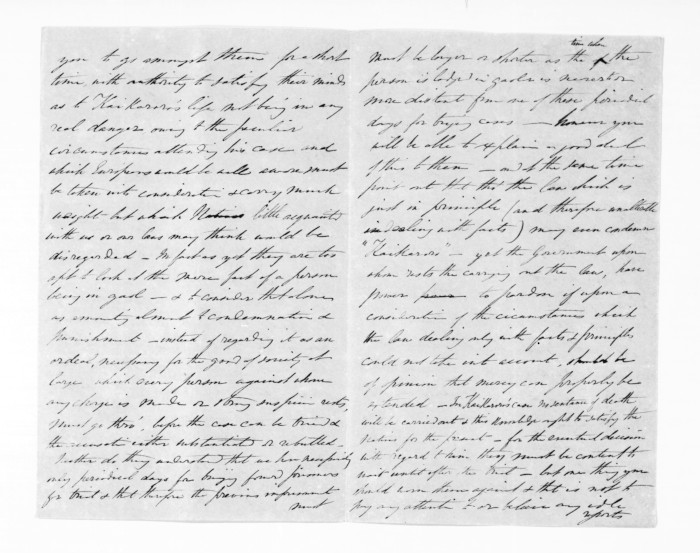 you to go amongst them for a short
time with authority to satisfy their minds
as to Kaikaroro's life not being in any
real danger owing to the peculiar
circumstances attending his case and
which Europeans would be well aware must
be taken into consideration & carry much
weight but which Natives little acquainted
with us or our laws may think would be
disregarded — In fact as yet they are too
apt to look at the mere fact of a person
being in gaol — & to consider that alone
as amounting almost to condemnation &
punishment — instead of regarding it as an
ordeal, necessary for the good of society at
large which every person against whom
any charge is made or strong suspicion rests,
must go thro', before the case can be tried &
the accusation either substantiated or rebutted —
Neither do they understand that we have necessarily
only periodical days for bringing forward prisoners
for trial & that therefore the previous imprisonment
must
must be longer or shorter as the time when the
person is lodged in gaol is nearer to or
more distant from one of these periodical
days for trying cases — however you
will be able to explain a good deal
of this to them — and at the same time
point out that tho' the Law which is
just in principle (and therefore unalterable
in dealing with facts) may even condemn
"Kaikaroro" — yet the Government upon
whom rests the carrying out the law, have
power to pardon if upon a
consideration of the circumstances which
the law dealing only with facts & principles
could not take into account, should be
of opinion that mercy can properly be
extended — In Kaikaroro's case no sentence of death
will be carried out & this knowledge ought to satisfy the
Natives for the present — for the eventual decision
with regard to him they must be content to
wait until after the trial — but one thing you
should warn them against & that is not to
pay any attention to or believe any idle
reports